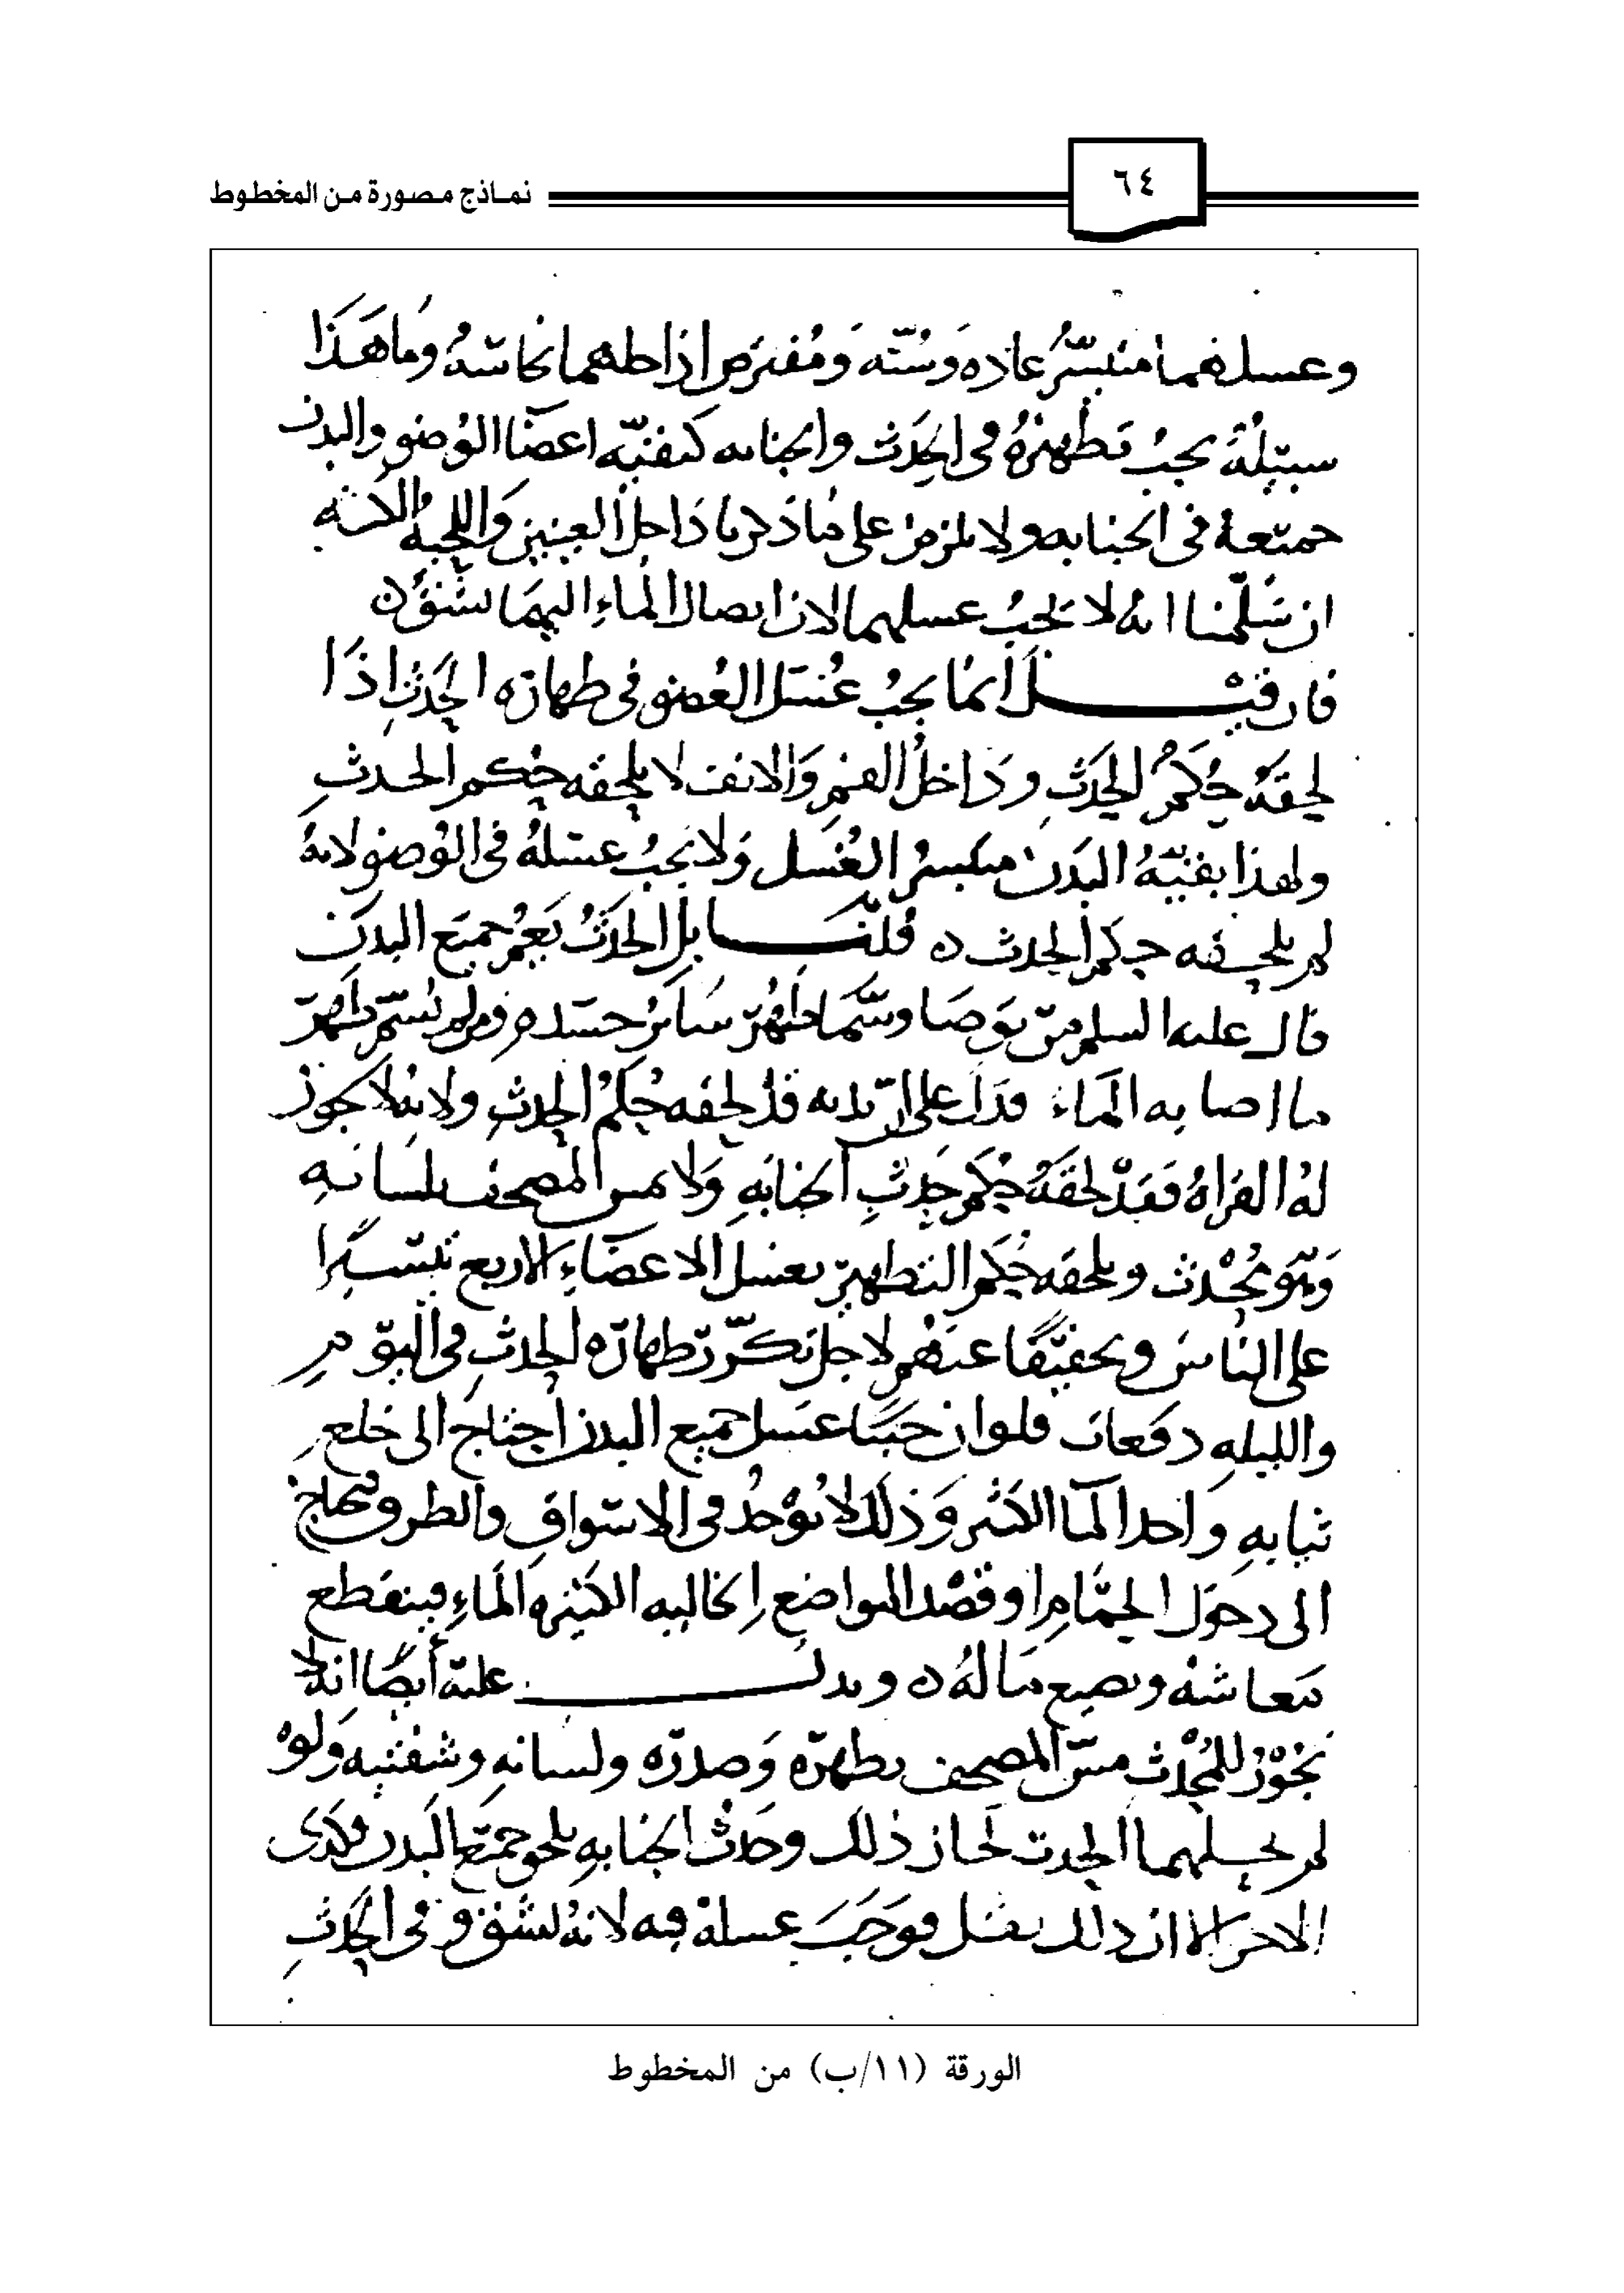 نماذج مصورة من المخطوط
٦٤
وغسلهما متيسر عاده وسنه ومفترض اذا طهما نجاسه وما هذا
سبيله يجب تطهيره في الحدث والجنابه كبقيه اعضا الوضو والبدن
جميعه في الجنابه ولا يلزم على ما ذكرنا داخل العينين واللحيه الكثه
ان سلمنا انه لا يجب غسلهما لان ايصال الماء اليهما يشق ه
فان قيل انما يجب غسل العضو في طهاره الحدث اذا
لحقه حكم الحدث وداخل الفم والانف لا يلحقه حكم الحدث
ولهذا بقيه البدن متيسر الغسل ولا يجب غسله في الوضو لانه
لم يلحقه حكم الحدث ه قلنا بل الحدث يعم جميع البدن
قال عليه السلم من توضا وسما طهر سائر جسده ومن لم يسم طهر
ما اصابه الماء فدل على ان بدنه قد لحقه حكم الحدث ولانه لا يجوز
له القراه فقد لحقه حكم حدث الجنابه ولا مس المصحف بلسانه
وهو محدث ويلحقه حكم التطهير بغسل الاعضاء الاربع تيسيرا
على الناس وتخفيفا عنهم لاجل تكرر طهاره الحدث في اليوم
والليله دفعات فلو اوجبنا غسل جميع البدن احتاج الى خلع
ثيابه واخذ الما الكثير وذلك لا يوجد في الاسواق والطرق فيحتاج
الى دخول الحمام او قصد المواضع الخاليه الكثيره الماء فينقطع
معاشه ويضيع ماله ه ويدل عليه أيضا انه لا
يجوز للمحدث مس المصحف بظهره وصدره ولسانه وشفتيه ولو
لم يحلهما الحدث لجاز ذلك وحدث الجنابه يلحق جميع البدن وكذى
الاخر الا ان ذلك يقل فوجب غسله فيه لانه لا يشق وفي الحدث
الورقة (١١/ب) من المخطوط